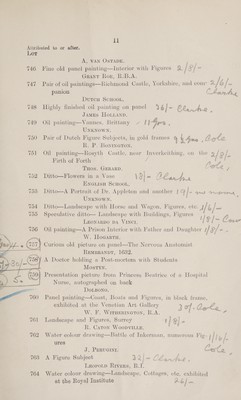 11
Attributed to or after.
Lot
A. van Ostade.
746 Fine old panel painting—Interior with Figures 2/8/-
Grant Bor, R.B.A.
747 Pair of oil paintings—Richmond Castle, Yorkshire, and companion 2/6/-
Clarke
Dutch School.
748 Highly finished oil painting on panel 26/- Clarke.
James Holland.
749 Oil painting—Vannes, Brittany
Unknown.
750 Pair of Dutch Figure Subjects, in gold frames Cole
R. P. Bonington.
751 Oil painting—Rosyth Castle, near Inverkeithing, on the 2/8/-
Firth of Forth Cole,
Thos. Gerard.
752 Ditto—Flowers in a Vase 12/- Clarke
English School.
753 Ditto—A Portrait of Dr. Appleton and another
Unknown.
754 Ditto—Landscape with Horse and Wagon, Figures, etc.
755 Speculative ditto—Landscape with Buildings, Figures
Leonardo da Vinci.
756 Oil painting—A Prison Interior with Father and Daughter
W. Hogarth.
757 Curious old picture on panel—The Nervous Anatomist
Rembrandt, 1632.
758 A Doctor holding a Post-mortem with Students
Mostyn.
759 Presentation picture from Princess Beatrice of a Hospital
Nurse, autographed on back
Dolbosq.
760 Panel painting—Coast, Horse and Figures, in black frame,
exhibited at the Venetian Art Gallery
W. F. Witherington, R.A.
761 Landscape and Figures, Surrey
R. Caton Woodville.
762 Water colour drawing—Battle of Inkerman, numerous Figures
Cole.
J. Perugini.
763 A Figure Subject 22/- Clarke.
Leopold Rivers, R.I.
764 Water colour drawing—Landscape, Cottages, etc. exhibited
at the Royal Institute 26/-